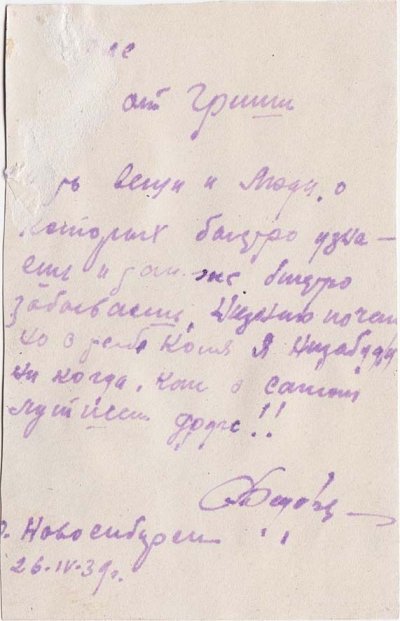 от Гриши
вещи и люди, о
которых быстро узна-
еш и так же быстро
забываеш,
но о тебе Коля я низабуду
ни когда, как о самом
лутшем друге!!
г. Новосибирск
26-IV-39г.